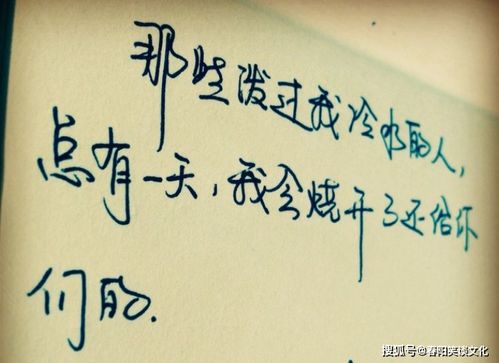 那些泼过我冷水的人,
总有一天,我会烧开了还给你
们的.
搜狐号@春阳笑谈文化